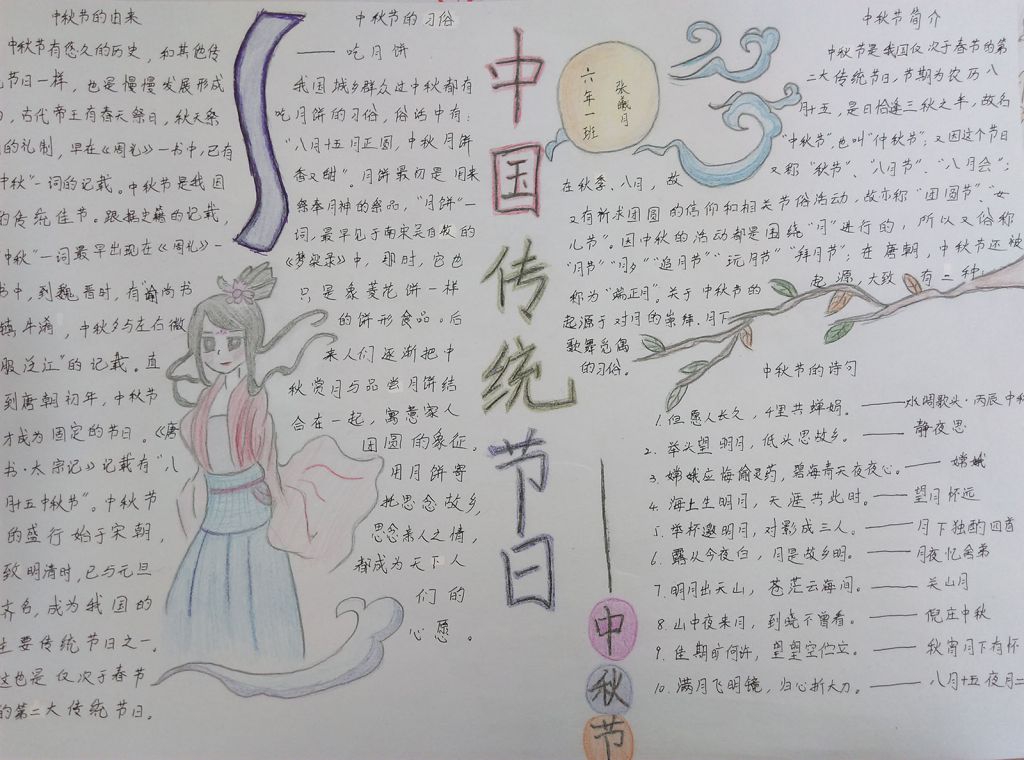 中秋节的由来
中秋节有悠久的历史，和其他传
节日一样，也是慢慢发展形成
，古代帝王有春天祭日，秋天祭
的礼制，早在《周礼》一书中，已有
中秋"一词的记载。中秋节是我国
的传统佳节。跟据史籍的记载，
中秋"一词最早出现在《周礼》一
书中，到魏晋时，有"谕尚书
镇牛淆，中秋夕与左右微
服泛江"的记载。直
到唐朝初年，中秋节
才成为固定的节日。《唐
书·太宗记》记载有"八
月十五中秋节"。中秋节
的盛行始于宋朝，
致明清时，已与元旦
齐名，成为我国的
主要传统节日之一。
这也是仅次于春节
的第二大传统节日。
中秋节的习俗
——吃月饼
我国城乡群众过中秋都有
吃月饼的习俗，俗话中有：
"八月十五月正圆，中秋月饼
香又甜"。月饼最初是用来
祭奉月神的祭品，"月饼"一
词，最早见于南宋吴自牧的
《梦梁录》中，那时，它也
只是象菱花饼一样
的饼形食品。后
来人们逐渐把中
秋赏月与品尝月饼结
合在一起，寓意家人
团圆的象征。
用月饼寄
托思念故乡，
思念亲人之情，
都成为天下人
们的
心愿。
中国传统节日
——
中秋节
六年一班
张曦月
中秋节简介
中秋节是我国仅次于春节的第
二大传统节日，节期为农历八
月十五，是日恰逢三秋之半，故名
"中秋节"，也叫"仲秋节"；又因这个节日
在秋季、八月，故又称"秋节"、"八月节"、"八月会"；
又有祈求团圆的信仰和相关节俗活动，故亦称"团圆节""女
儿节"。因中秋的活动都是围绕"月"进行的，所以又俗称
"月节""月夕""追月节""玩月节""拜月节"；在唐朝，中秋节还被
称为"端正月"。关于中秋节的起源，大致有二种：
起源于对月的崇拜、月下
歌舞觅偶
的习俗。
中秋节的诗句
1. 但愿人长久，千里共蝉娟。——水调歌头·丙辰中秋
2. 举头望明月，低头思故乡。——静夜思
3. 嫦娥应悔偷灵药，碧海青天夜夜心。——嫦娥
4. 海上生明月，天涯共此时。——望月怀远
5. 举杯邀明月，对影成三人。——月下独酌四首
6. 露从今夜白，月是故乡明。——月夜忆舍弟
7. 明月出天山，苍茫云海间。——关山月
8. 山中夜来月，到晓不曾看。——倪庄中秋
9. 佳期旷何许，望望空伫立。——秋宵月下有怀
10. 满月飞明镜，归心折大刀。——八月十五夜月二